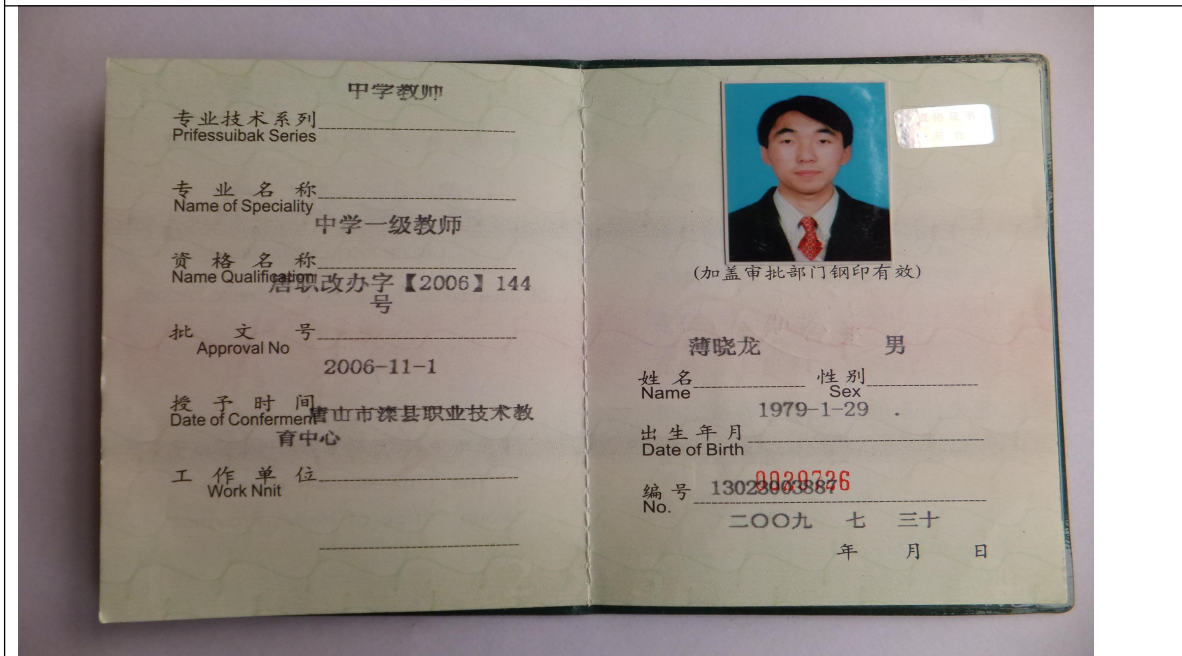 中学教师
专业技术系列
Prifessuibak Series
专业名称
Name of Speciality
中学一级教师
资格名称
Name Qualification
唐职改办字【2006】144
号
批文号
Approval No
2006-11-1
授予时间
Date of Conferment
唐山市滦县职业技术教
育中心
工作单位
Work Nnit
(加盖审批部门钢印有效)
薄晓龙 男
姓名 性别
Name Sex
1979-1-29
出生年月
Date of Birth
编号
No.
二〇〇九 七 三十
年 月 日